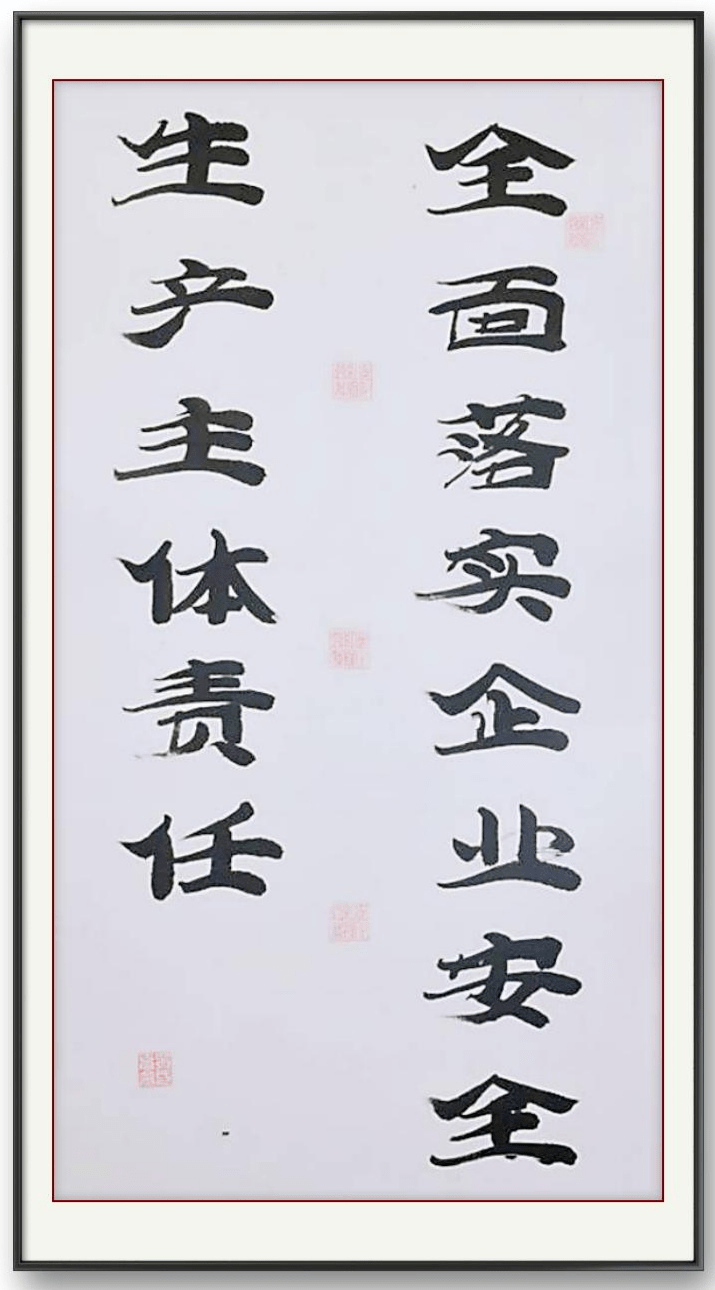 全面落实企业安全
生产主体责任